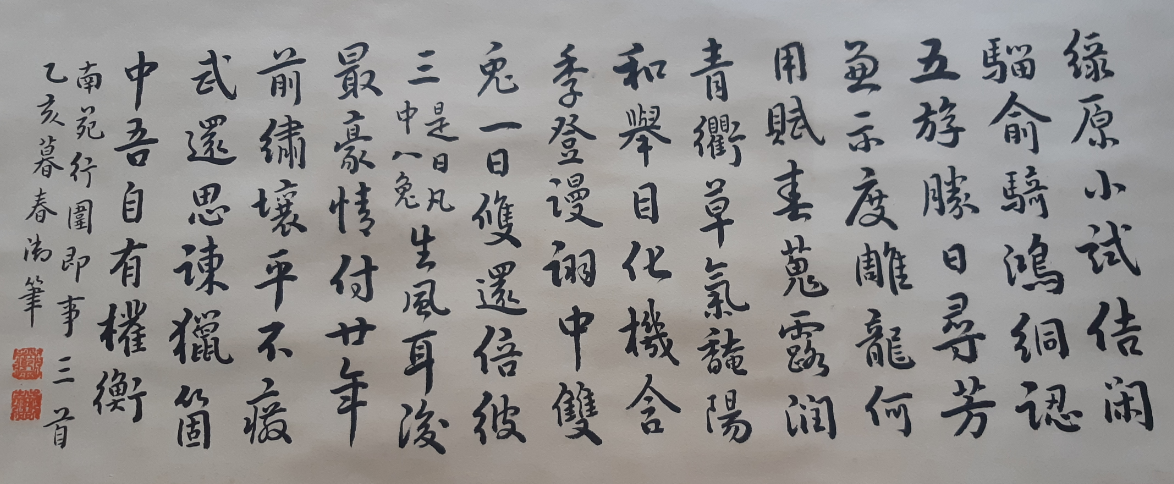 綠原小試佶閑
騮俞騎鴻絅認
五斿勝日尋芳
兼示度雕龍何
用賦春蒐露潤
青衢草氣馣陽
和舉目化機含
季登謾詡中雙
兎一日獲還倍彼
三是日凡中八兔生風耳後
最豪情付廿年
前繡壤平不癈
武還思諫獵箇
中吾自有權衡
南苑行圍即事三首
乙亥暮春御筆